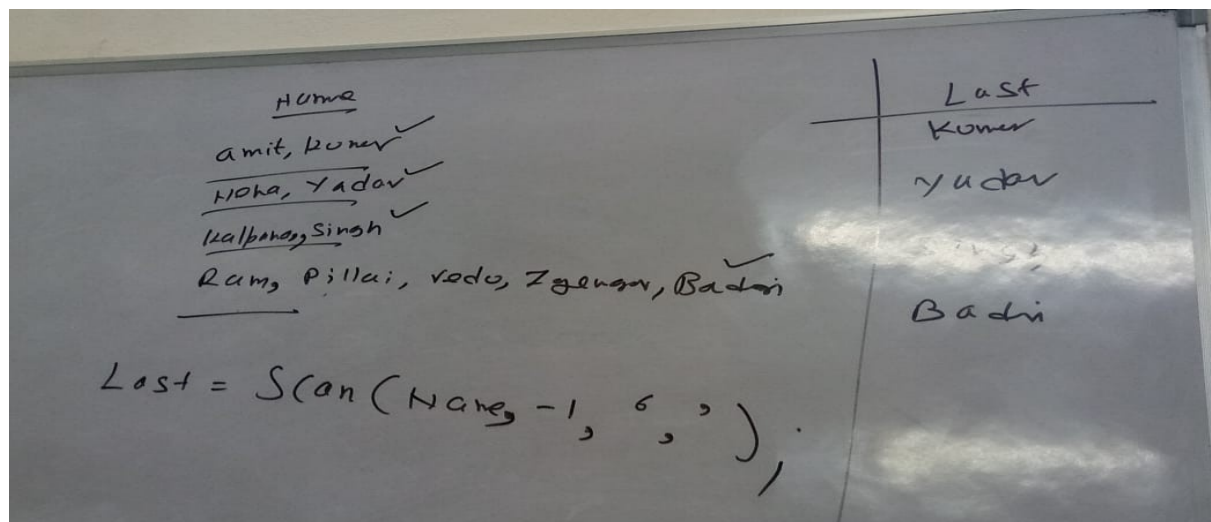 Name
amit, Kumer
Noha, Yadav
Kalpana, Singh
Ram, Pillai, vedu, Iyenger, Badri
Last = Scan(Name, -1, ‘,’);
Last
Kumer
Yadav
Badri